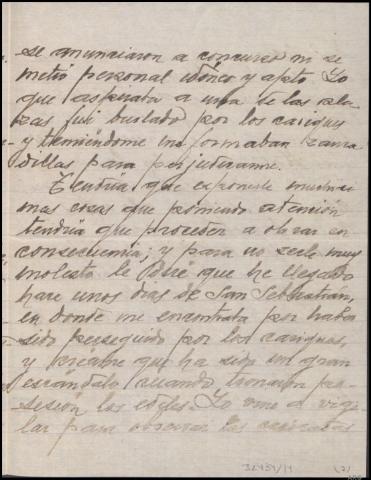 se anunciaron a concurso ni se
metió personal idóneo y apto. Yo
que aspiraba a una de las pla-
zas fui burlado por los caciques
y temiéndome me formaban zanca
dillas para perjudicarme.
Tendría que exponerle muchísi
mas cosas que poniendo atención
tendría que proceder a obrar en
consecuencia; y para no serle muy
molesto le diré que he llegado
hace unos días de San Sebastián,
en donde me encontraba por haber
sido perseguido por los caciques,
y créame que ha sido un gran
escandalo cuando tomaron po-
sesión los ediles. Yo vine a vigi
lar para observar las
32454/14 (2)